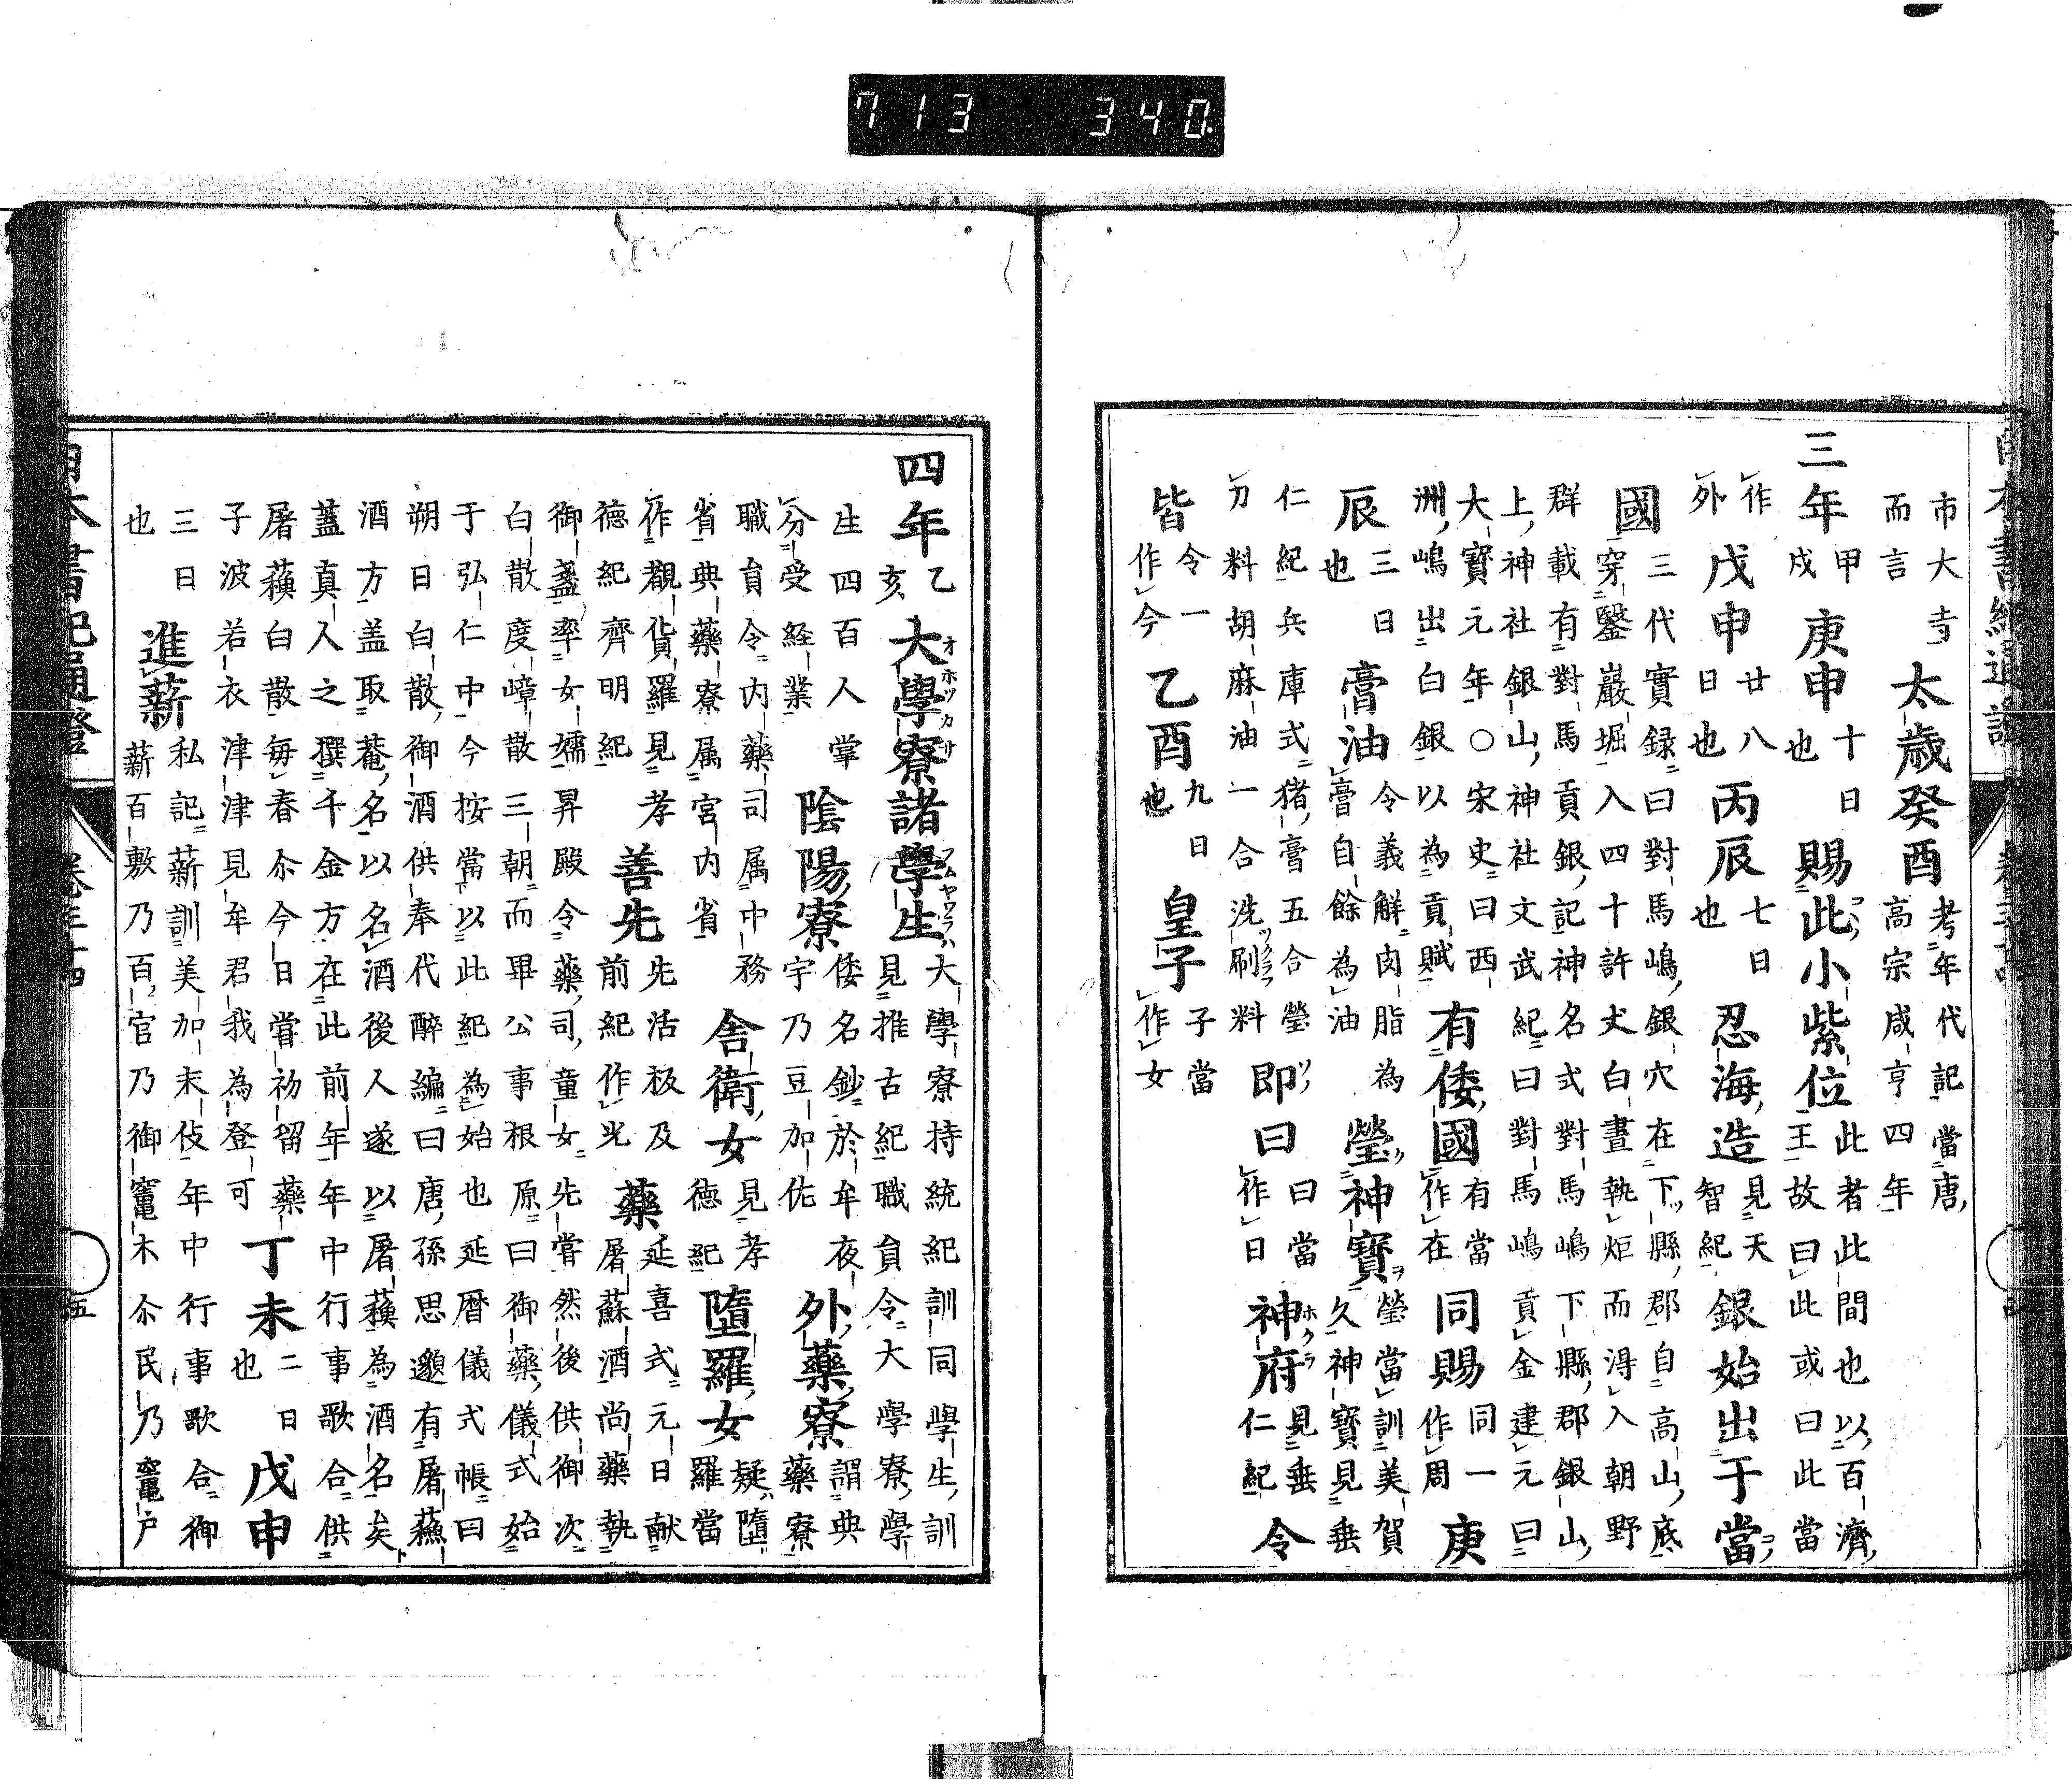 市大寺而言太歳癸酉考年代記當唐高宗咸亨四年
三年甲戌庚申十日也賜此小紫位此者此間也以百濟王故曰此或曰此當
作外戊申廿八日也丙辰七日也忍海造見天智紀銀始出于當
國三代實録曰對馬嶋銀穴在下縣郡自高山底穿鑿巖堀入四十許丈白晝執炬而得入朝野
群載有對馬貢銀記神名式對馬嶋下縣郡銀山上神社銀山神社文武紀曰對馬嶋貢金建元曰
大寶元年○宋史曰西洲嶋出白銀以為貢賦有倭國有當作在同賜同一作周庚
辰三日也膏油令義解肉脂為膏自餘為油瑩神寶瑩當訓美賀久神寶見垂
仁紀兵庫式猪膏五合瑩刀料胡麻油一合洗刷料即曰曰當作日神府見垂仁紀令
皆令一作今乙酉九日也皇子子當作女
四年乙亥大學寮諸學生大學寮持統紀訓同學生訓見推古紀職員令大學寮學
生四百人掌分受経業陰陽寮倭名鈔於牟夜宇乃豆加佐外藥寮謂典藥寮
職員令内藥司属中務省典藥寮属宮内省舎衛女見孝德紀墮羅女疑墮羅當
作覩貨羅見孝德紀齊明紀善先先活板及前紀作光藥延喜式元日献屠蘇酒尚藥執
御盞率女嬬昇殿令藥司童女先甞然後供御次白散度嶂散三朝而畢公事根原曰御藥儀式始
于弘仁中今按當以此紀為始也延暦儀式帳曰朔日白散御酒供奉代醉編曰唐孫思邈有屠蘓
酒方盖取菴名以名酒後人遂以屠蘓為酒名矣蓋真人之撰千金方在此前年年中行事歌合供
屠蘓白散毎春尓今日甞初留藥子波若衣津津見牟君我為登可丁未二日也戊申
三日也進薪私記薪訓美加末伎年中行事歌合御薪百敷乃百官乃御竃木尓民乃竃戸